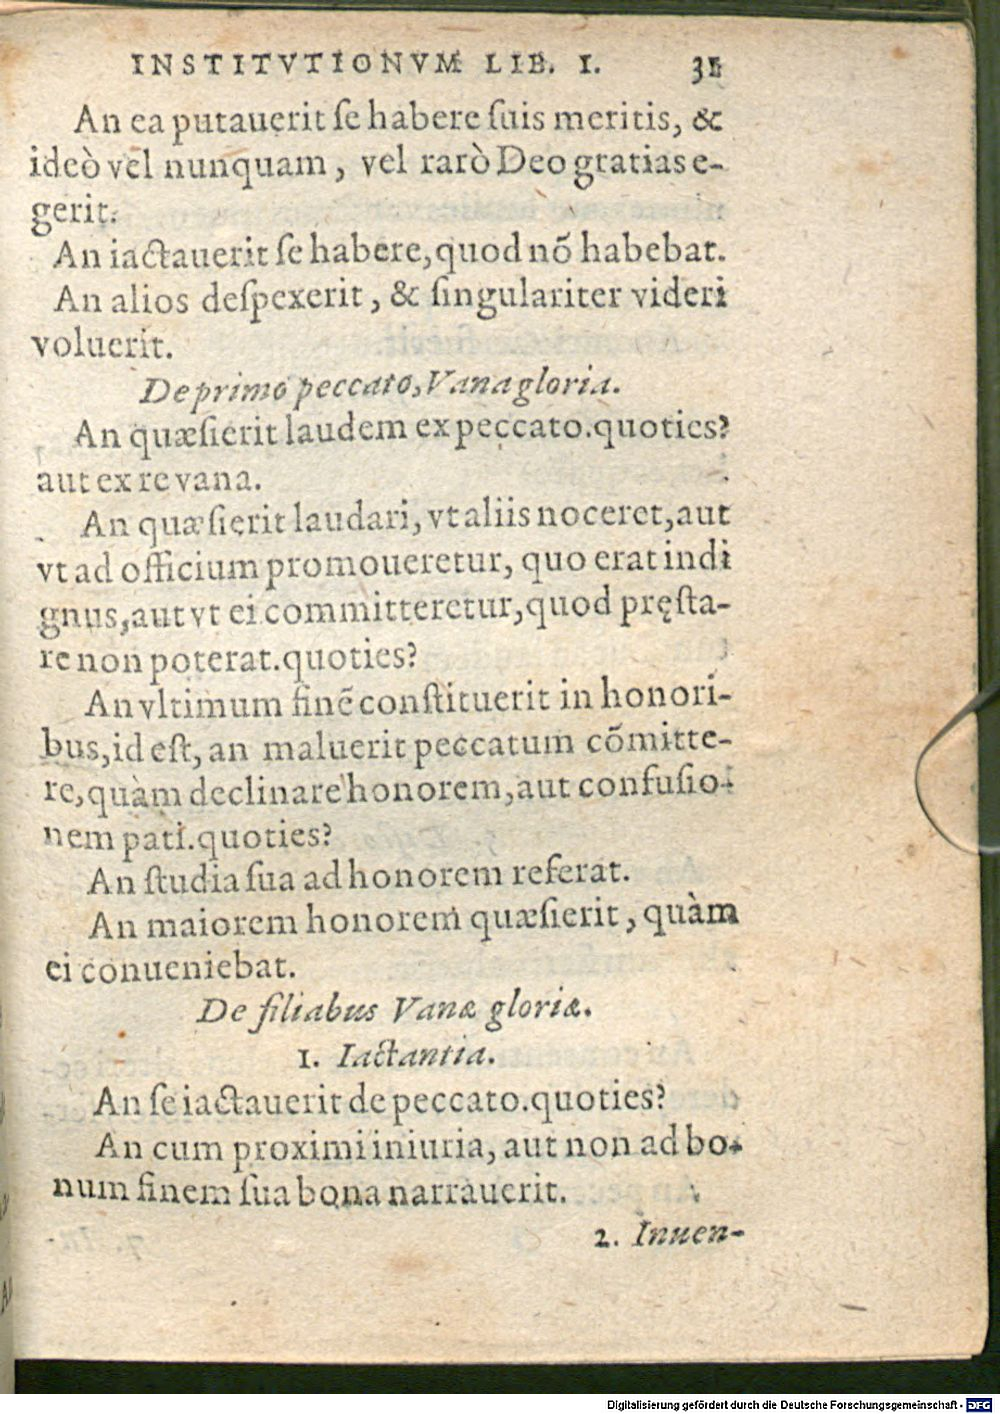 INSTITVTIONVM LIB. I. 31
An ea putauerit ſe habere ſuis meritis, &
ideò vel nunquam, vel rarò Deo gratias e-
gerit.
An iactauerit ſe habere, quod nõ habebat.
An alios deſpexerit, & ſingulariter videri
voluerit.
De primo peccato, Vana gloria.
An quæſierit laudem ex peccato. quoties?
aut ex re vana.
An quæſierit laudari, vt aliis noceret, aut
vt ad officium promoueretur, quo erat indi
gnus, aut vt ei committeretur, quod pręſta-
re non poterat. quoties?
An vltimum finẽ conſtituerit in honori-
bus, id eſt, an maluerit peccatum cõmitte-
re, quàm declinare honorem, aut confuſio-
nem pati. quoties?
An ſtudia ſua ad honorem referat.
An maiorem honorem quæſierit, quàm
ei conueniebat.
De filiabus Vanæ gloriæ.
1. Iactantia.
An ſe iactauerit de peccato. quoties?
An cum proximi iniuria, aut non ad bo-
num finem ſua bona narrauerit.
2. Inuen-
Digitalisierung gefördert durch die Deutsche Forschungsgemeinschaft - DFG